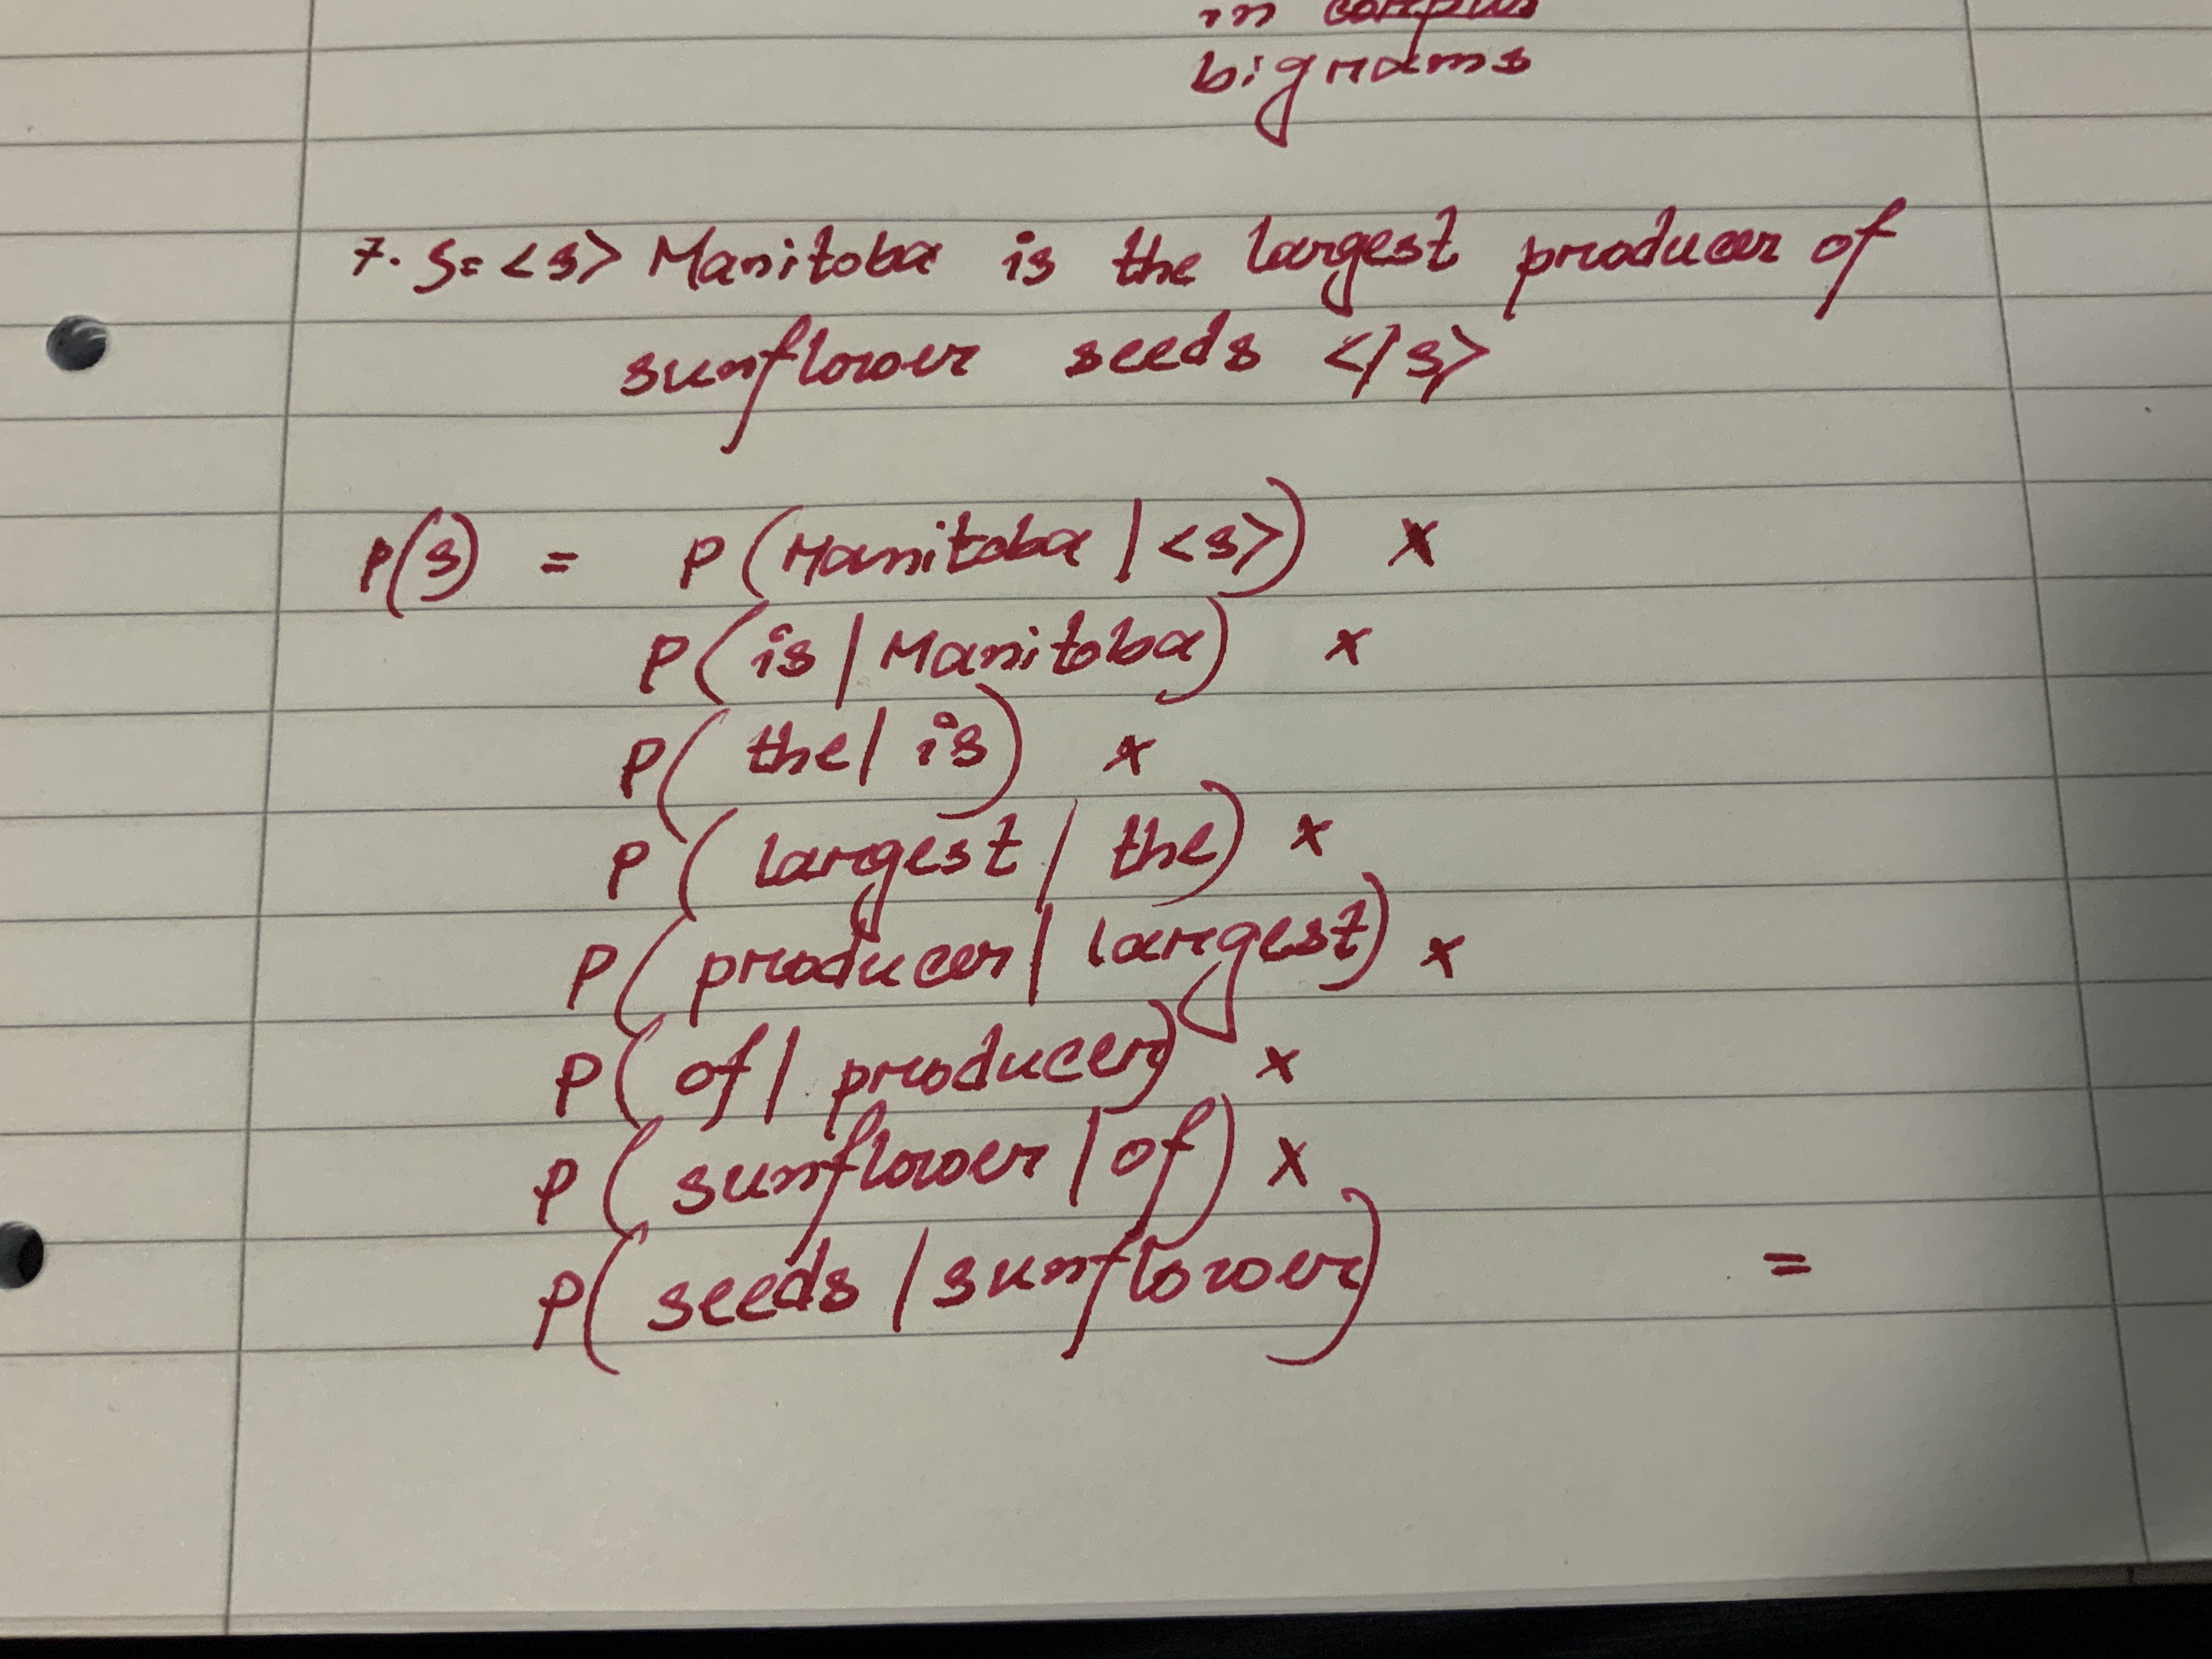 in corpus
bigrams
7. S= <s> Manitoba is the largest producer of
sunflower seeds </s>
P(s) = P(Manitoba | <s>) x
P(is | Manitoba) x
P(the | is) x
P(largest | the) x
P(producer | largest) x
P(of | producer) x
P(sunflower | of) x
P(seeds | sunflower) =